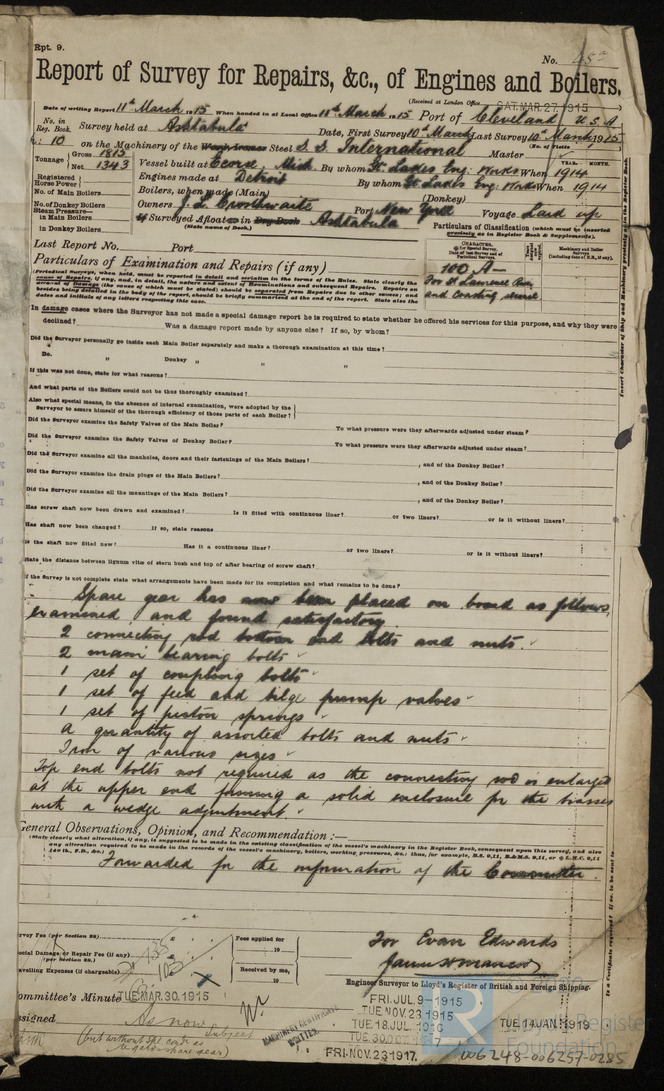 Rpt. 9.
No.
Report of Survey for Repairs, &c., of Engines and Boilers.
(Received at London Office SAT. MAR. 27 1915
Date of writing Report 11th March 1915 When handed in at Local Office 11th March 1915 Port of Cleveland U.S.A
No. in Reg. Book. Survey held at Ashtabula Date, First Survey 10th March Last Survey 10th March 1915
10 on the Machinery of the Wood, Iron or Steel S.S. International Master
Tonnage Gross 1815
Net 1343 Vessel built at Ecorse, Mich. By whom Gt Lakes Eng. Works When 1914
YEAR. MONTH.
Registered Horse Power Engines made at Detroit By whom Gt Lakes Eng: Works When 1914
No. of Main Boilers Boilers, when made (Main) (Donkey)
No. of Donkey Boilers Owners J. L. Crosthwaite Port New York Voyage Laid up
Steam Pressure—
in Main Boilers If Surveyed Afloat or in Dry Dock Ashtabula
in Donkey Boilers (State name of Dock.)
Particulars of Classification (which must be inserted precisely as in Register Book & Supplements).
Last Report No. Port
Particulars of Examination and Repairs (if any)
100 A—
For St Lawrence River
and Coasting service
In damage cases where the Surveyor has not made a special damage report he is required to state whether he offered his services for this purpose, and why they were
declined? Was a damage report made by anyone else? If so, by whom?
Did the Surveyor personally go inside each Main Boiler separately and make a thorough examination at this time?
Do. „ Donkey „ „ „
If this was not done, state for what reasons?
And what parts of the Boilers could not be thus thoroughly examined?
Also what special means, in the absence of internal examination, were adopted by the
Surveyor to assure himself of the thorough efficiency of those parts of each Boiler?
Did the Surveyor examine the Safety Valves of the Main Boiler? To what pressure were they afterwards adjusted under steam?
Did the Surveyor examine the Safety Valves of Donkey Boiler? To what pressure were they afterwards adjusted under steam?
Did the Surveyor examine all the manholes, doors and their fastenings of the Main Boilers? , and of the Donkey Boiler?
Did the Surveyor examine the drain plugs of the Main Boilers? , and of the Donkey Boiler?
Did the Surveyor examine all the mountings of the Main Boilers? , and of the Donkey Boiler?
Has screw shaft now been drawn and examined? Is it fitted with continuous liner? or two liners? or is it without liners?
Has shaft now been changed? If so, state reasons
Is the shaft now fitted new? Has it a continuous liner? or two liners? or is it without liners?
State the distance between lignum vitæ of stern bush and top of after bearing of screw shaft?
If the Survey is not complete state what arrangements have been made for its completion and what remains to be done?
Spare gear has now been placed on board as follows,
examined and found satisfactory.
2 connecting rod bottom end bolts and nuts.
2 main bearing bolts
1 set of coupling bolts
1 set of feed and bilge pump valves
1 set of piston springs
a quantity of assorted bolts and nuts
Iron of various sizes
Top end bolts not required as the connecting rod is enlarged
at the upper end forming a solid enclosure for the brasses
with a wedge adjustment.
General Observations, Opinion, and Recommendation:—
Forwarded for the information of the Committee.
Survey Fee (per Section 28) Fees applied for
Special Damage or Repair Fee (if any) 19
Travelling Expenses (if chargeable) Received by me,
19
For Evan Edwards
Engineer Surveyor to Lloyd's Register of British and Foreign Shipping.
Committee's Minute TUE. MAR. 30. 1915
FRI. JUL. 9 - 1915
TUE. NOV. 23 1915
TUE. 18 JUL. 1916
TUE. 14 JAN. 1919
TUE. 30 OCT. 1917
FRI. NOV. 23 1917.
Assigned As now Subject
(but without spl cond as
regards spare gear)
MACHINERY CERTIFICATE WRITTEN.
Lloyd's Register
Foundation
006248-006257-0285